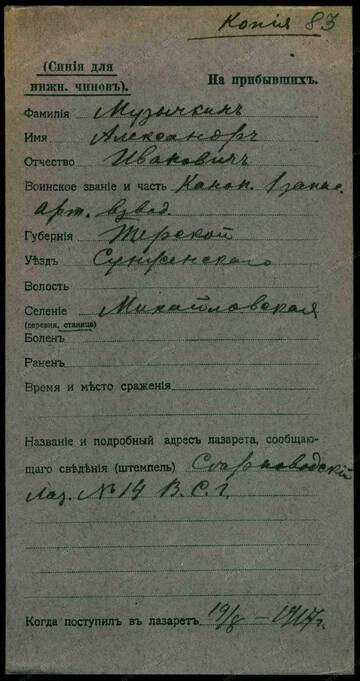 Копія 83
(Синія для нижн. чиновъ).
На прибывшихъ.
Фамилія Музычкинъ
Имя Александръ
Отчество Ивановичъ
Воинское званіе и часть Канон. 1 запас.
арт. взвод.
Губернія Терской
Уѣздъ Сунженскаго
Волость
Селеніе Михайловская
(деревня, станица)
Боленъ
Раненъ
Время и мѣсто сраженія
Названіе и подробный адресъ лазарета, сообщаю-
щаго свѣдѣнія (штемпель)
Лаз. № 14 В.С.Г.
Когда поступилъ въ лазаретъ 19/8 – 1917г.